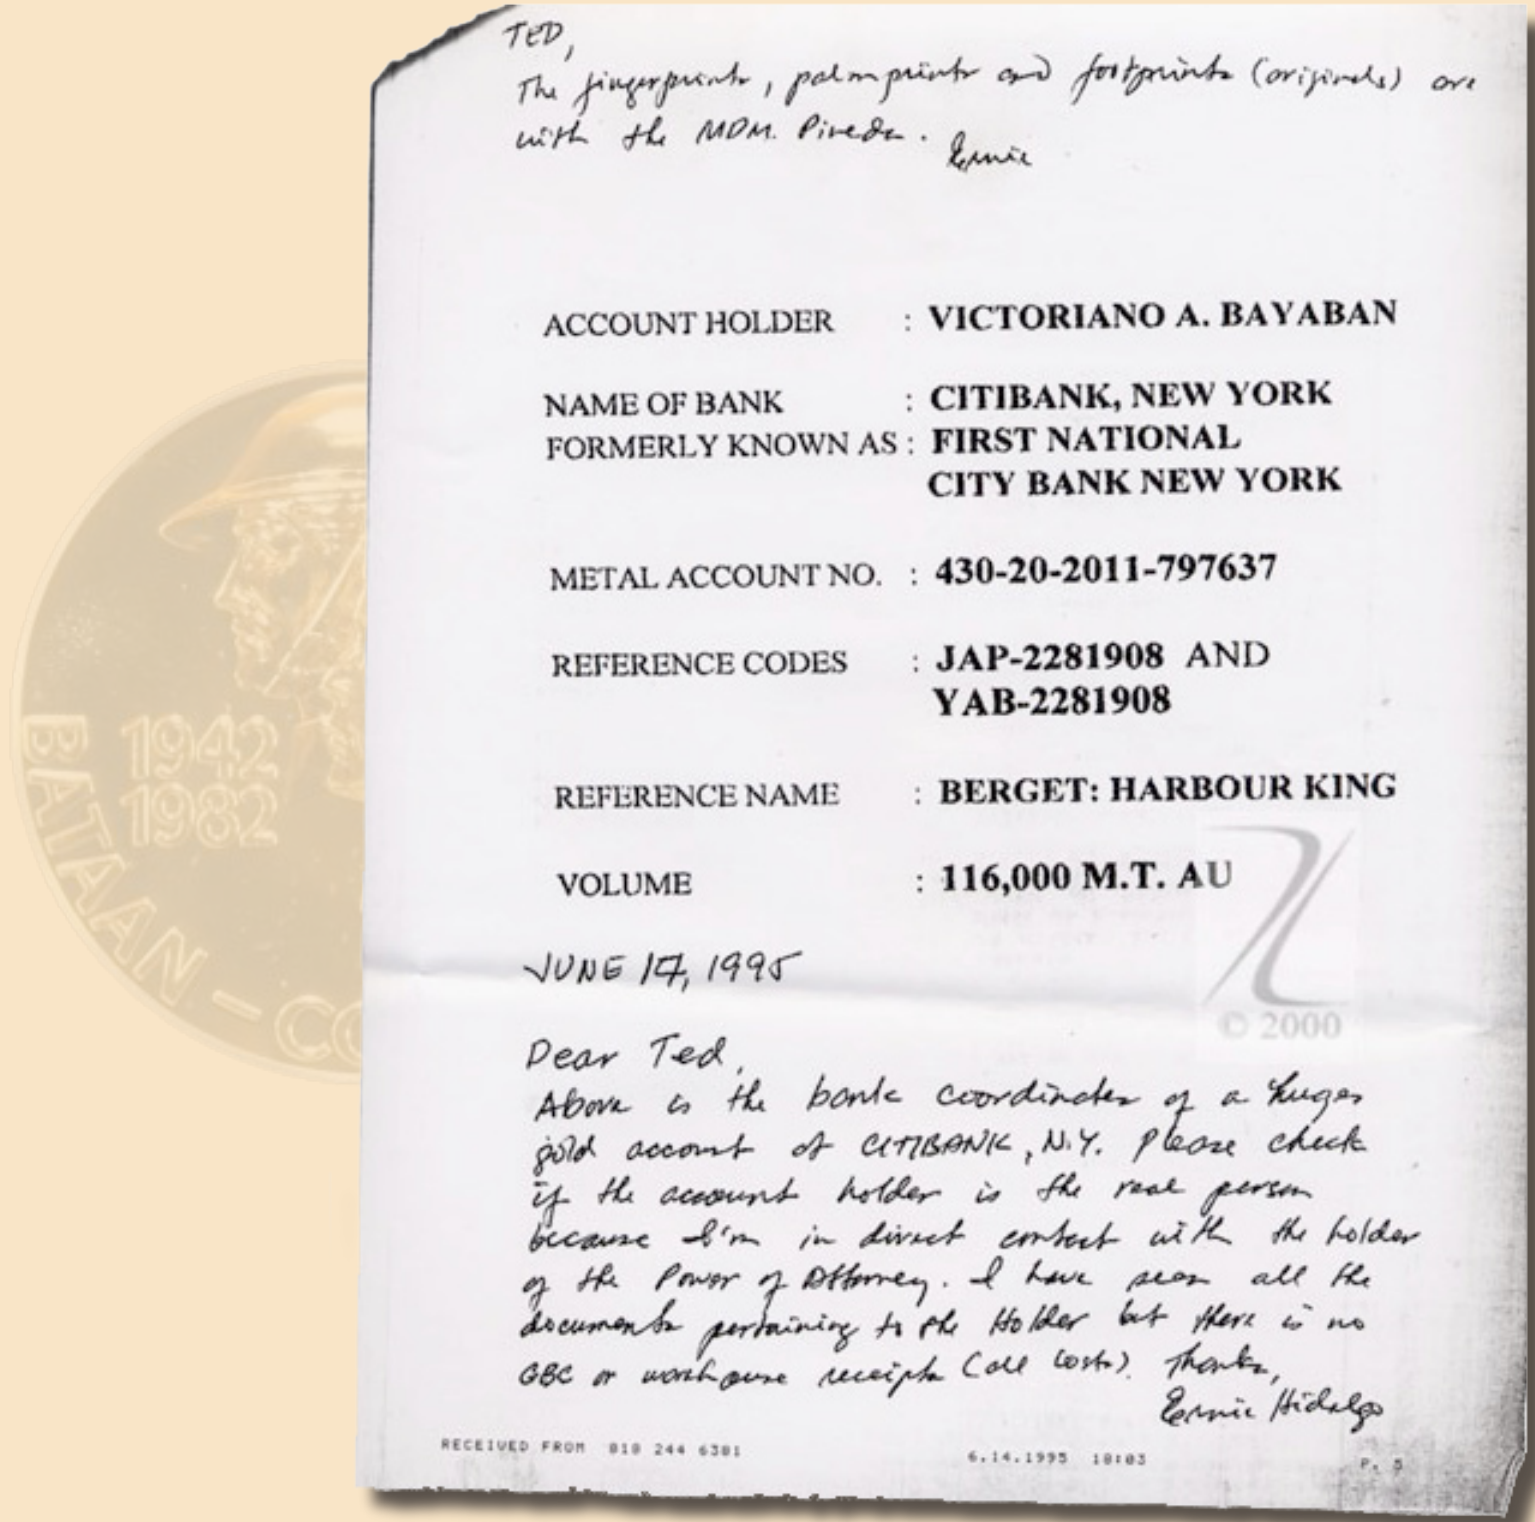 TED,
The fingerprints, palmprints and footprints (originals) are
with the MDM. Pineda.
Ernie
ACCOUNT HOLDER : VICTORIANO A. BAYABAN
NAME OF BANK : CITIBANK, NEW YORK
FORMERLY KNOWN AS : FIRST NATIONAL
CITY BANK NEW YORK
METAL ACCOUNT NO. : 430-20-2011-797637
REFERENCE CODES : JAP-2281908 AND
YAB-2281908
REFERENCE NAME : BERGET: HARBOUR KING
VOLUME : 116,000 M.T. AU
JUNE 17, 1995
© 2000
Dear Ted,
Above is the bank coordinates of a huges
gold account of CITIBANK, N.Y. Please check
if the account holder is the real person
because I'm in direct contact with the holder
of the Power of Attorney. I have seen all the
documents pertaining to the Holder but there is no
GBC or warehouse receipts (all losts). Thanks,
Ernie Hidalgo
RECEIVED FROM 818 244 6381 6.14.1995 18:03 P. 5
1942
1982
BATAAN - CO